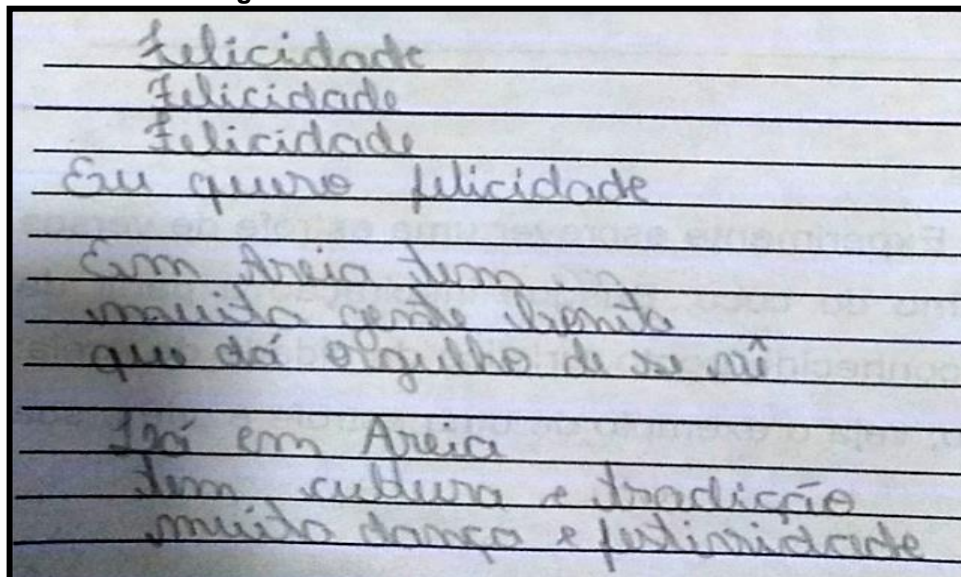 Felicidade
Felicidade
Felicidade
Eu quero felicidade
Em Areia tem
muita gente bonita
que dá orgulho de se vê
Lá em Areia
tem cultura e tradição
muita dança e festividade